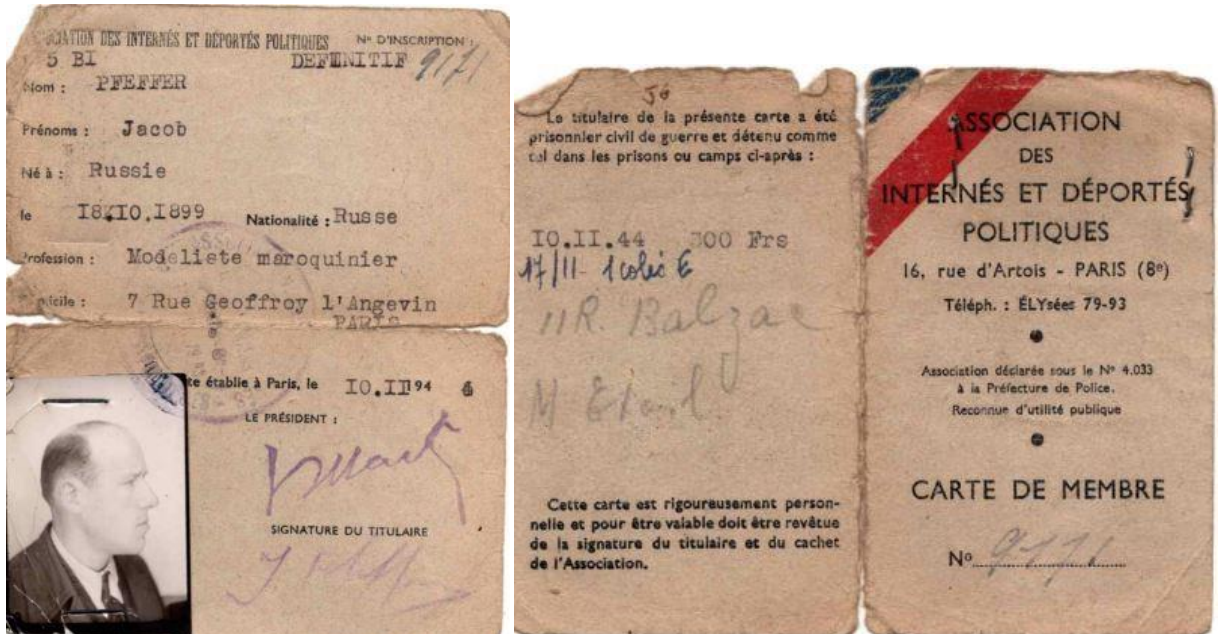 ASSOCIATION DES INTERNÉS ET DÉPORTÉS POLITIQUES N° D'INSCRIPTION :
5 BI DEFINITIF 9171
Nom : PFEFFER
Prénoms : Jacob
Né à : Russie
le 18.IO.I899 Nationalité : Russe
Profession : Modeliste maroquinier
Domicile : 7 Rue Geoffroy l'Angevin
PARIS
te établie à Paris, le IO.II 194
LE PRÉSIDENT :
SIGNATURE DU TITULAIRE
Le titulaire de la présente carte a été
prisonnier civil de guerre et détenu comme
tel dans les prisons ou camps ci-après :
IO.II.44 300 Frs
17/11- 1 colis E
11 R. Balzac
M
Cette carte est rigoureusement person-
nelle et pour être valable doit être revêtue
de la signature du titulaire et du cachet
de l'Association.
ASSOCIATION
DES
INTERNÉS ET DÉPORTÉS
POLITIQUES
16, rue d'Artois - PARIS (8e)
Téléph. : ÉLYsées 79-93
Association déclarée sous le N° 4.033
à la Préfecture de Police.
Reconnue d'utilité publique
CARTE DE MEMBRE
No 9171